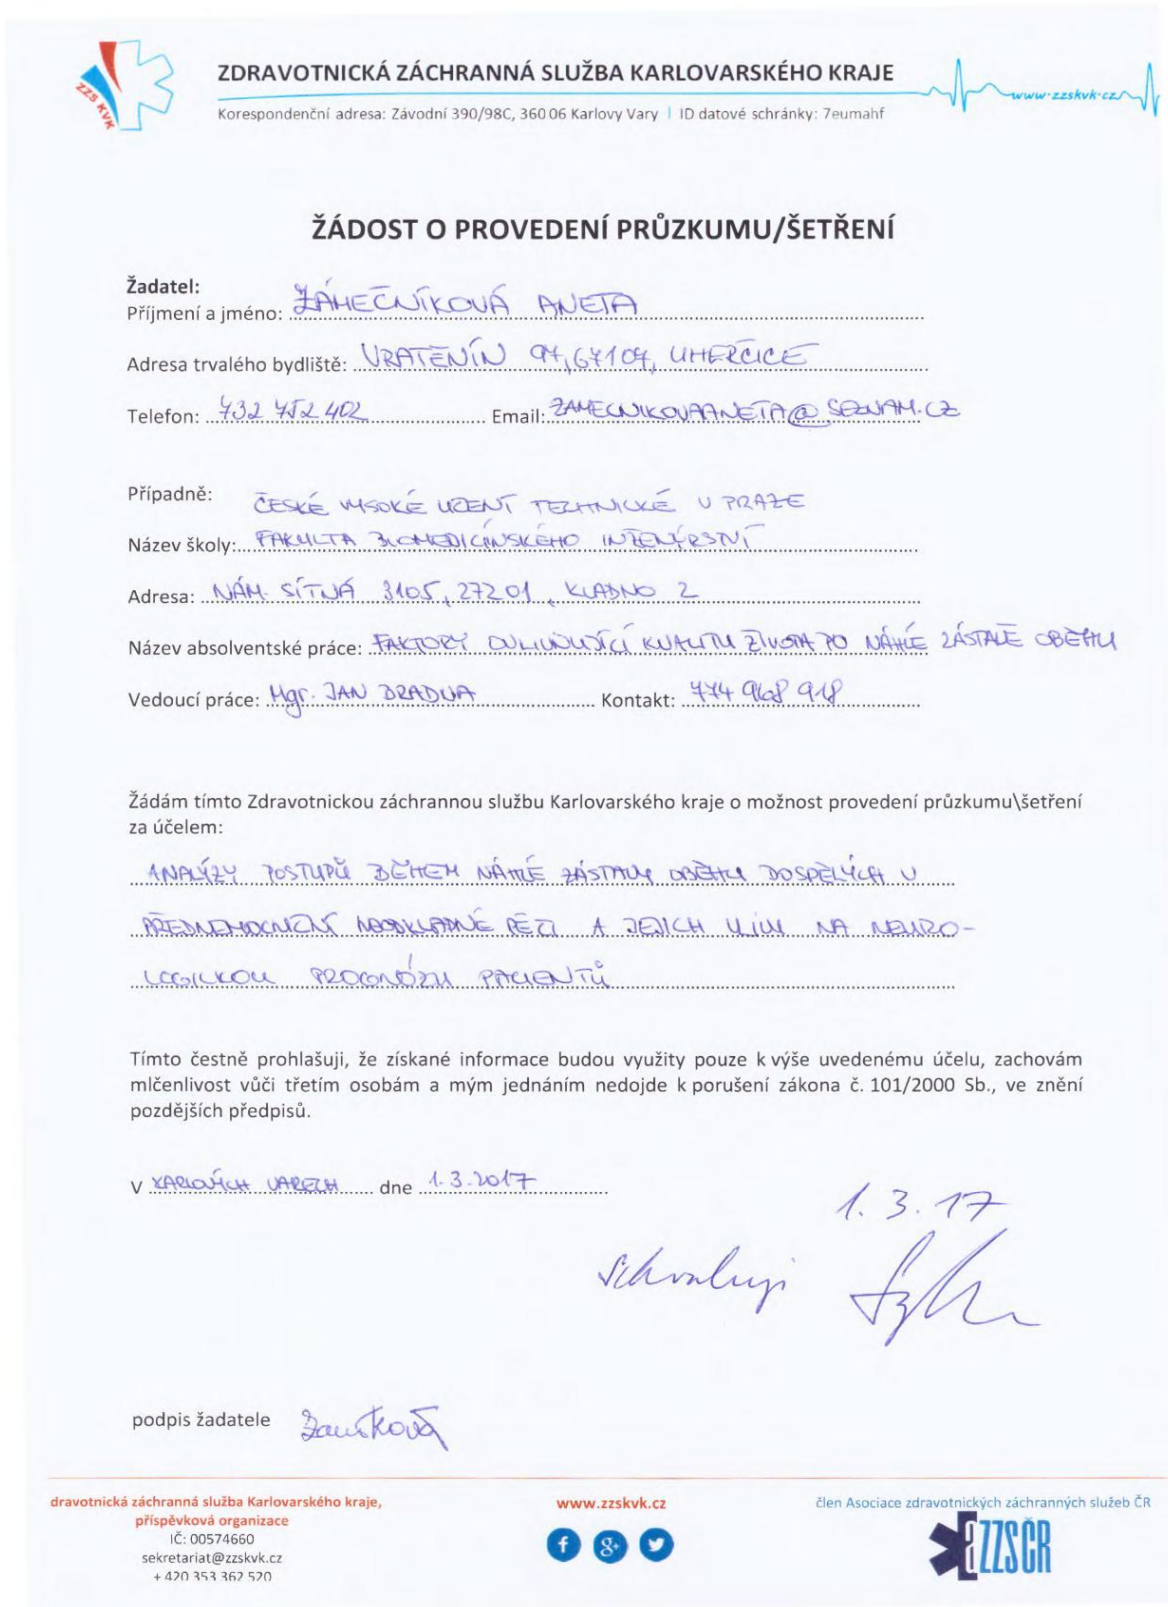 ZZS KVK
ZDRAVOTNICKÁ ZÁCHRANNÁ SLUŽBA KARLOVARSKÉHO KRAJE
www.zzskvk.cz
Korespondenční adresa: Závodní 390/98C, 360 06 Karlovy Vary | ID datové schránky: 7eumahf
ŽÁDOST O PROVEDENÍ PRŮZKUMU/ŠETŘENÍ
Žadatel:
Příjmení a jméno: ZÁMEČNÍKOVÁ ANETA
Adresa trvalého bydliště: VRATĚNÍN 94, 67107, UHERČICE
Telefon: 732 752 402 Email: ZAMECNIKOVAANETA@SEZNAM.CZ
Případně: ČESKÉ VYSOKÉ UČENÍ TECHNICKÉ V PRAZE
Název školy: FAKULTA BIOMEDICÍNSKÉHO INŽENÝRSTVÍ
Adresa: NÁM. SÍTNÁ 3105, 27201, KLADNO 2
Název absolventské práce: FAKTORY OVLIVŇUJÍCÍ KVALITU ŽIVOTA PO NÁHLÉ ZÁSTAVĚ OBĚHU
Vedoucí práce: Mgr. JAN BRADNA Kontakt: 774 968 918
Žádám tímto Zdravotnickou záchrannou službu Karlovarského kraje o možnost provedení průzkumu\šetření
za účelem:
ANALÝZY POSTUPŮ BĚHEM NÁHLÉ ZÁSTAVY OBĚHU DOSPĚLÝCH V
PŘEDNEMOCNIČNÍ NEODKLADNÉ PÉČI A JEJICH VLIV NA NEURO-
LOGICKOU PROGNÓZU PACIENTŮ
Tímto čestně prohlašuji, že získané informace budou využity pouze k výše uvedenému účelu, zachovám
mlčenlivost vůči třetím osobám a mým jednáním nedojde k porušení zákona č. 101/2000 Sb., ve znění
pozdějších předpisů.
V KARLOVÝCH VARECH dne 1.3.2017
1. 3. 17
Schvaluji
podpis žadatele
dravotnická záchranná služba Karlovarského kraje,
příspěvková organizace
IČ: 00574660
sekretariat@zzskvk.cz
+ 420 353 362 520
www.zzskvk.cz
f g+
člen Asociace zdravotnických záchranných služeb ČR
aZZSČR